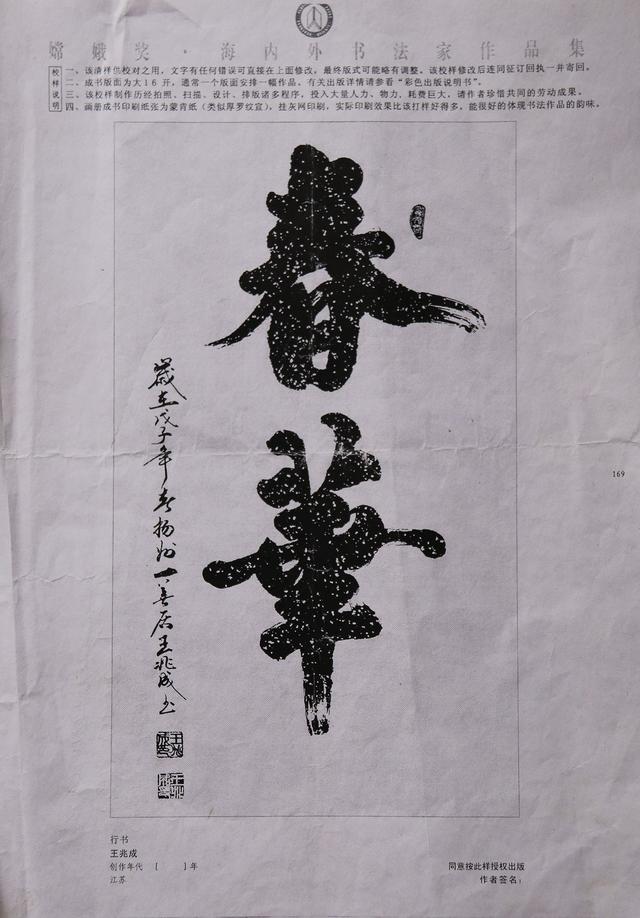 嫦娥奖·海内外书法家作品集
校样说明
一、该清样供校对之用，文字有任何错误可直接在上面修改，最终版式可能略有调整。该校样修改后连同征订回执一并寄回。
二、成书版面为大16开，通常一个版面安排一幅作品。有关出版详情请参看“彩色出版说明书”。
三、该校样制作历经拍照、扫描、设计、排版诸多程序，投入大量人力、物力，耗费巨大，请作者珍惜共同的劳动成果。
四、画册成书印刷纸张为蒙肯纸（类似厚罗纹宣），挂灰网印刷，实际印刷效果比该打样好得多，能很好的体现书法作品的韵味。
春華
歲在戊子年春扬州一善居王兆成书
169
行书
王兆成
创作年代 [ ] 年
江苏
同意按此样授权出版
作者签名：